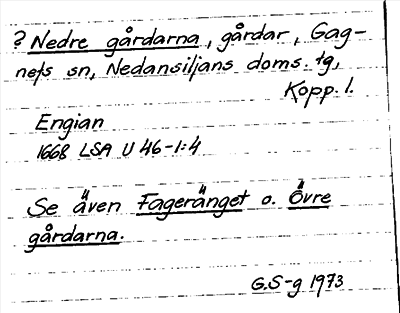 ? Nedre gårdarna, gårdar, Gag-
nefs sn, Nedansiljans doms. tg,
Kopp. l.
Engian
1668 LSA U 46-1:4
Se även Fageränget o. Övre
gårdarna.
G.S-g 1973